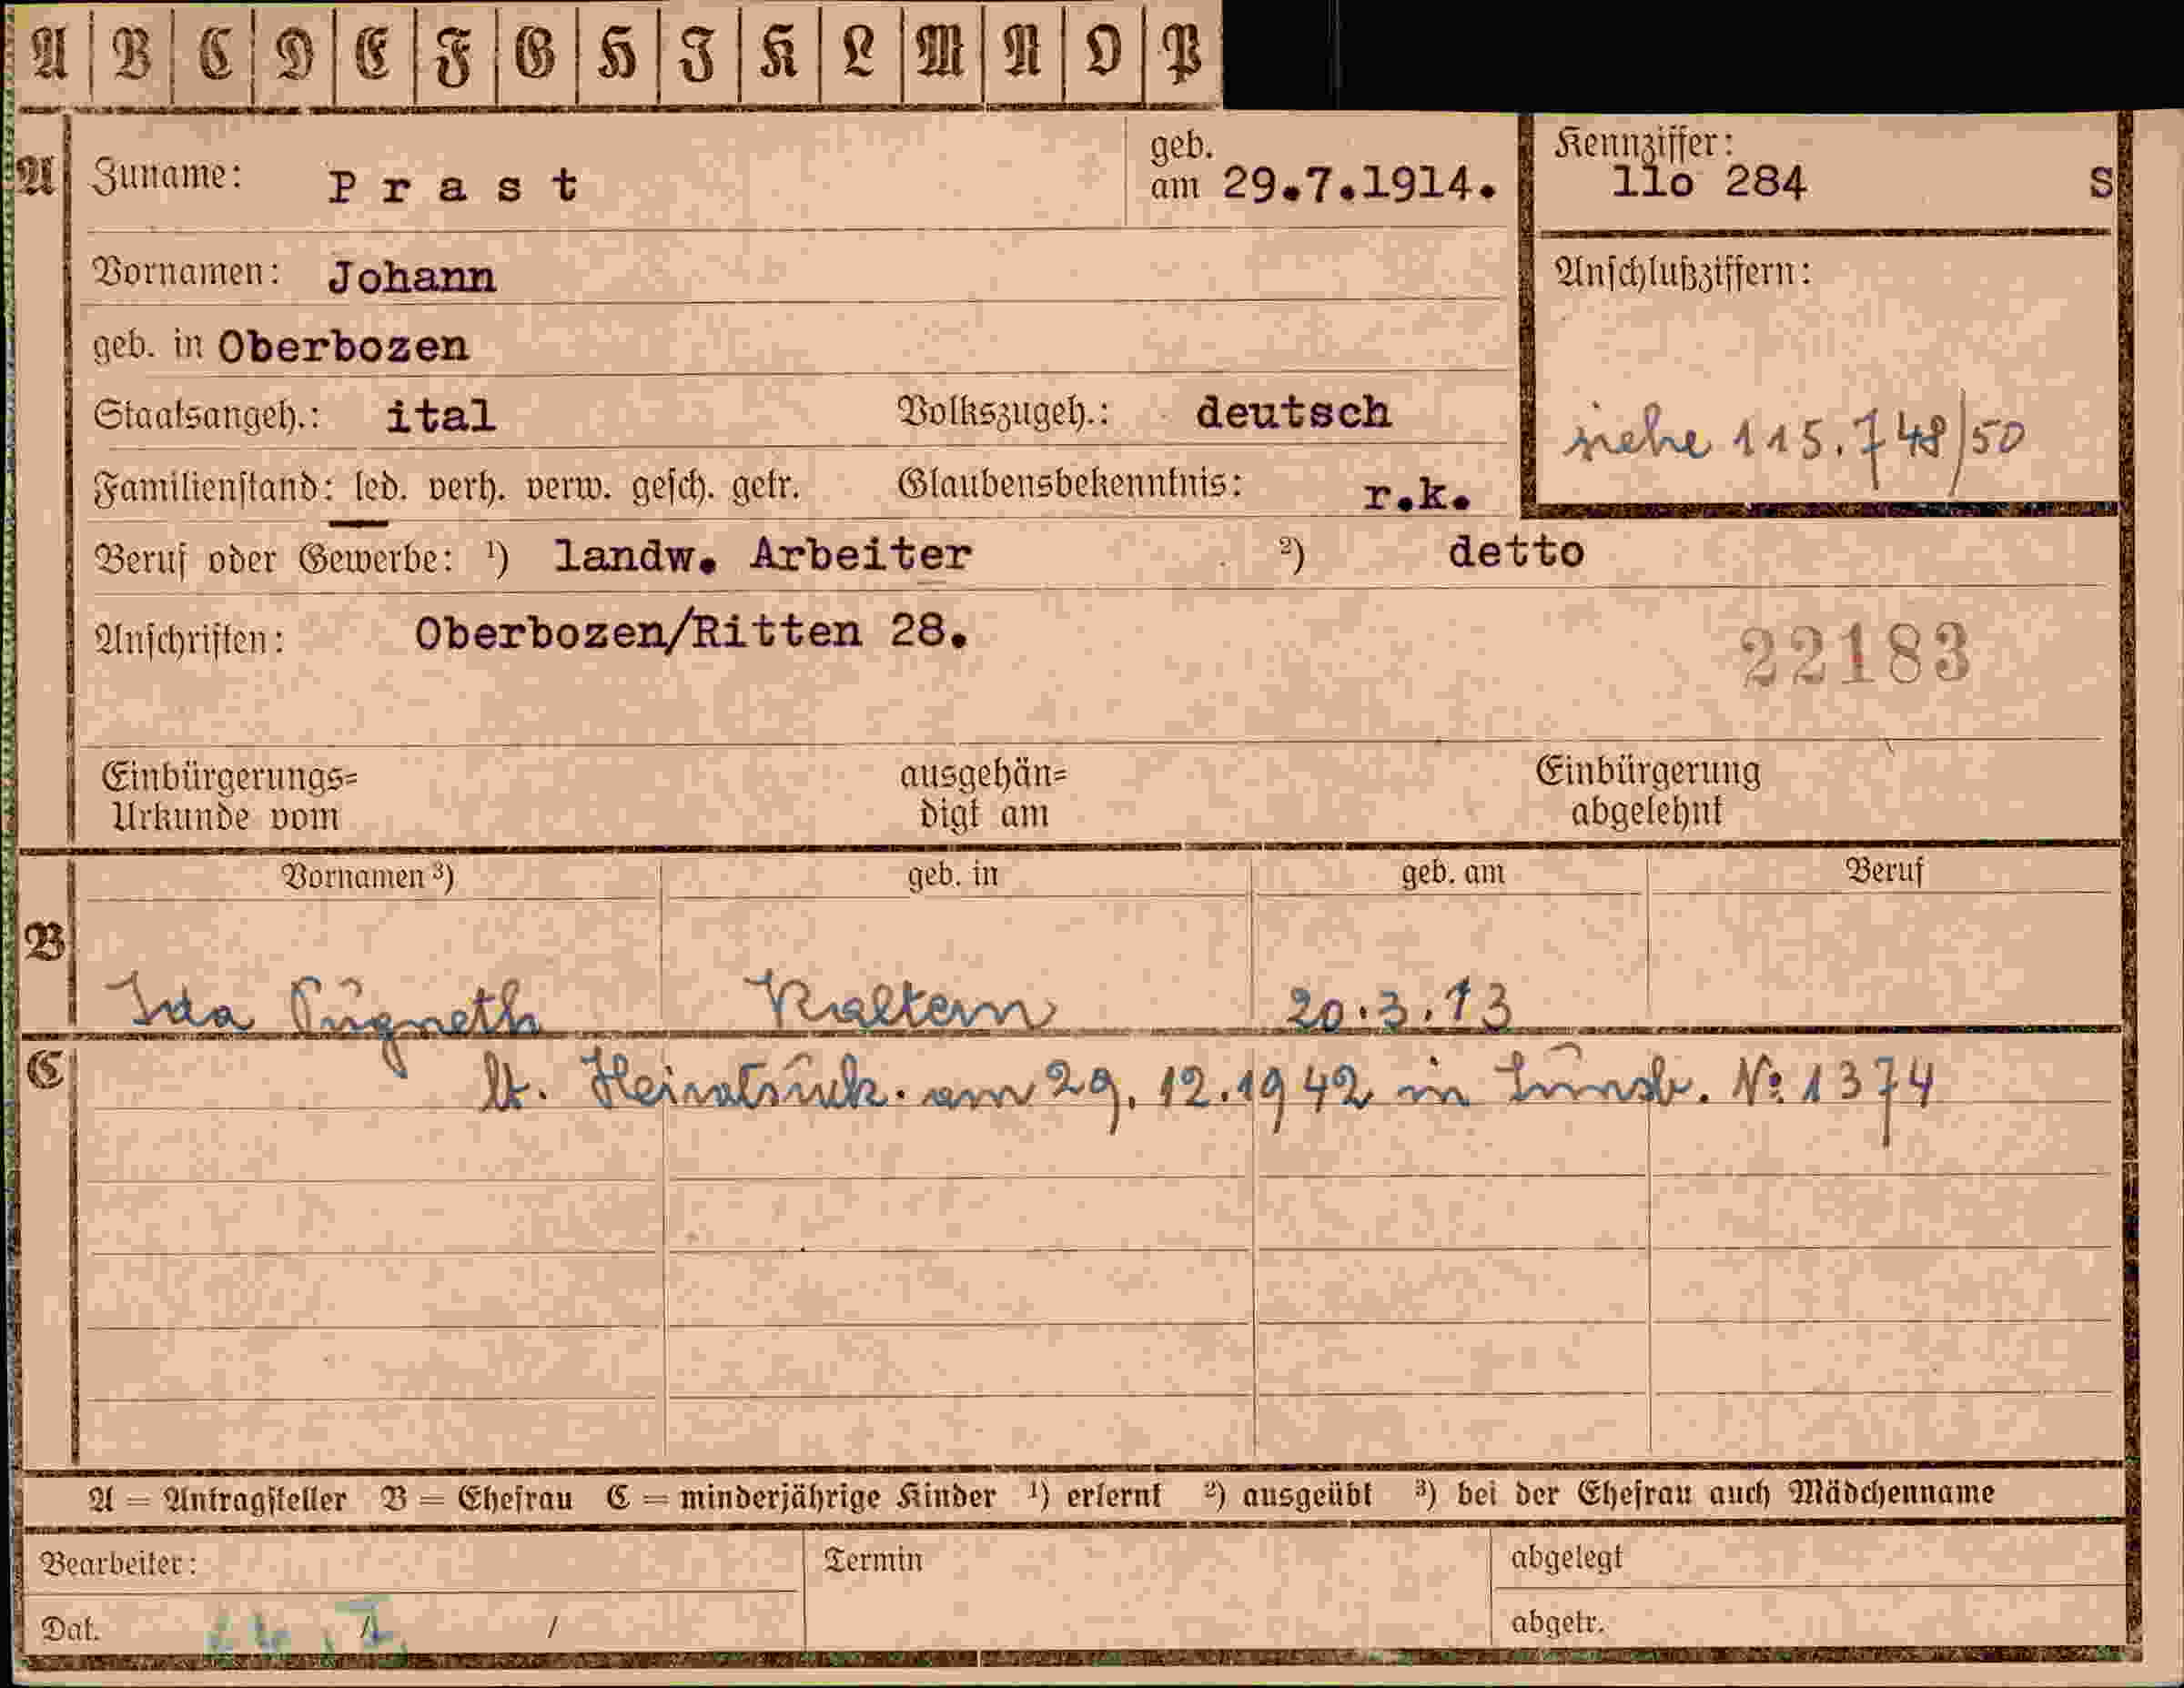 A B C D E F G H J K L M N O P
A Zuname: Prast geb. am 29.7.1914. Kennziffer: llo 284 S
Vornamen: Johann Anschlußziffern:
geb. in Oberbozen
Staatsangeh.: ital Volkszugeh.: deutsch siehe 115.748/50
Familienstand: led. verh. verw. gesch. getr. Glaubensbekenntnis: r.k.
Beruf oder Gewerbe: ¹) landw. Arbeiter ²) detto
Anschriften: Oberbozen/Ritten 28. 22183
Einbürgerungs= ausgehän= Einbürgerung
Urkunde vom digt am abgelehnt
Vornamen ³) geb. in geb. am Beruf
B
Ida Kaltern 20.3.13
C lt. am 29.12.1942 in No 1374
A = Antragsteller B = Ehefrau C = minderjährige Kinder ¹) erlernt ²) ausgeübt ³) bei der Ehefrau auch Mädchenname
Bearbeiter: Termin abgelegt
Dat. / / abgetr.